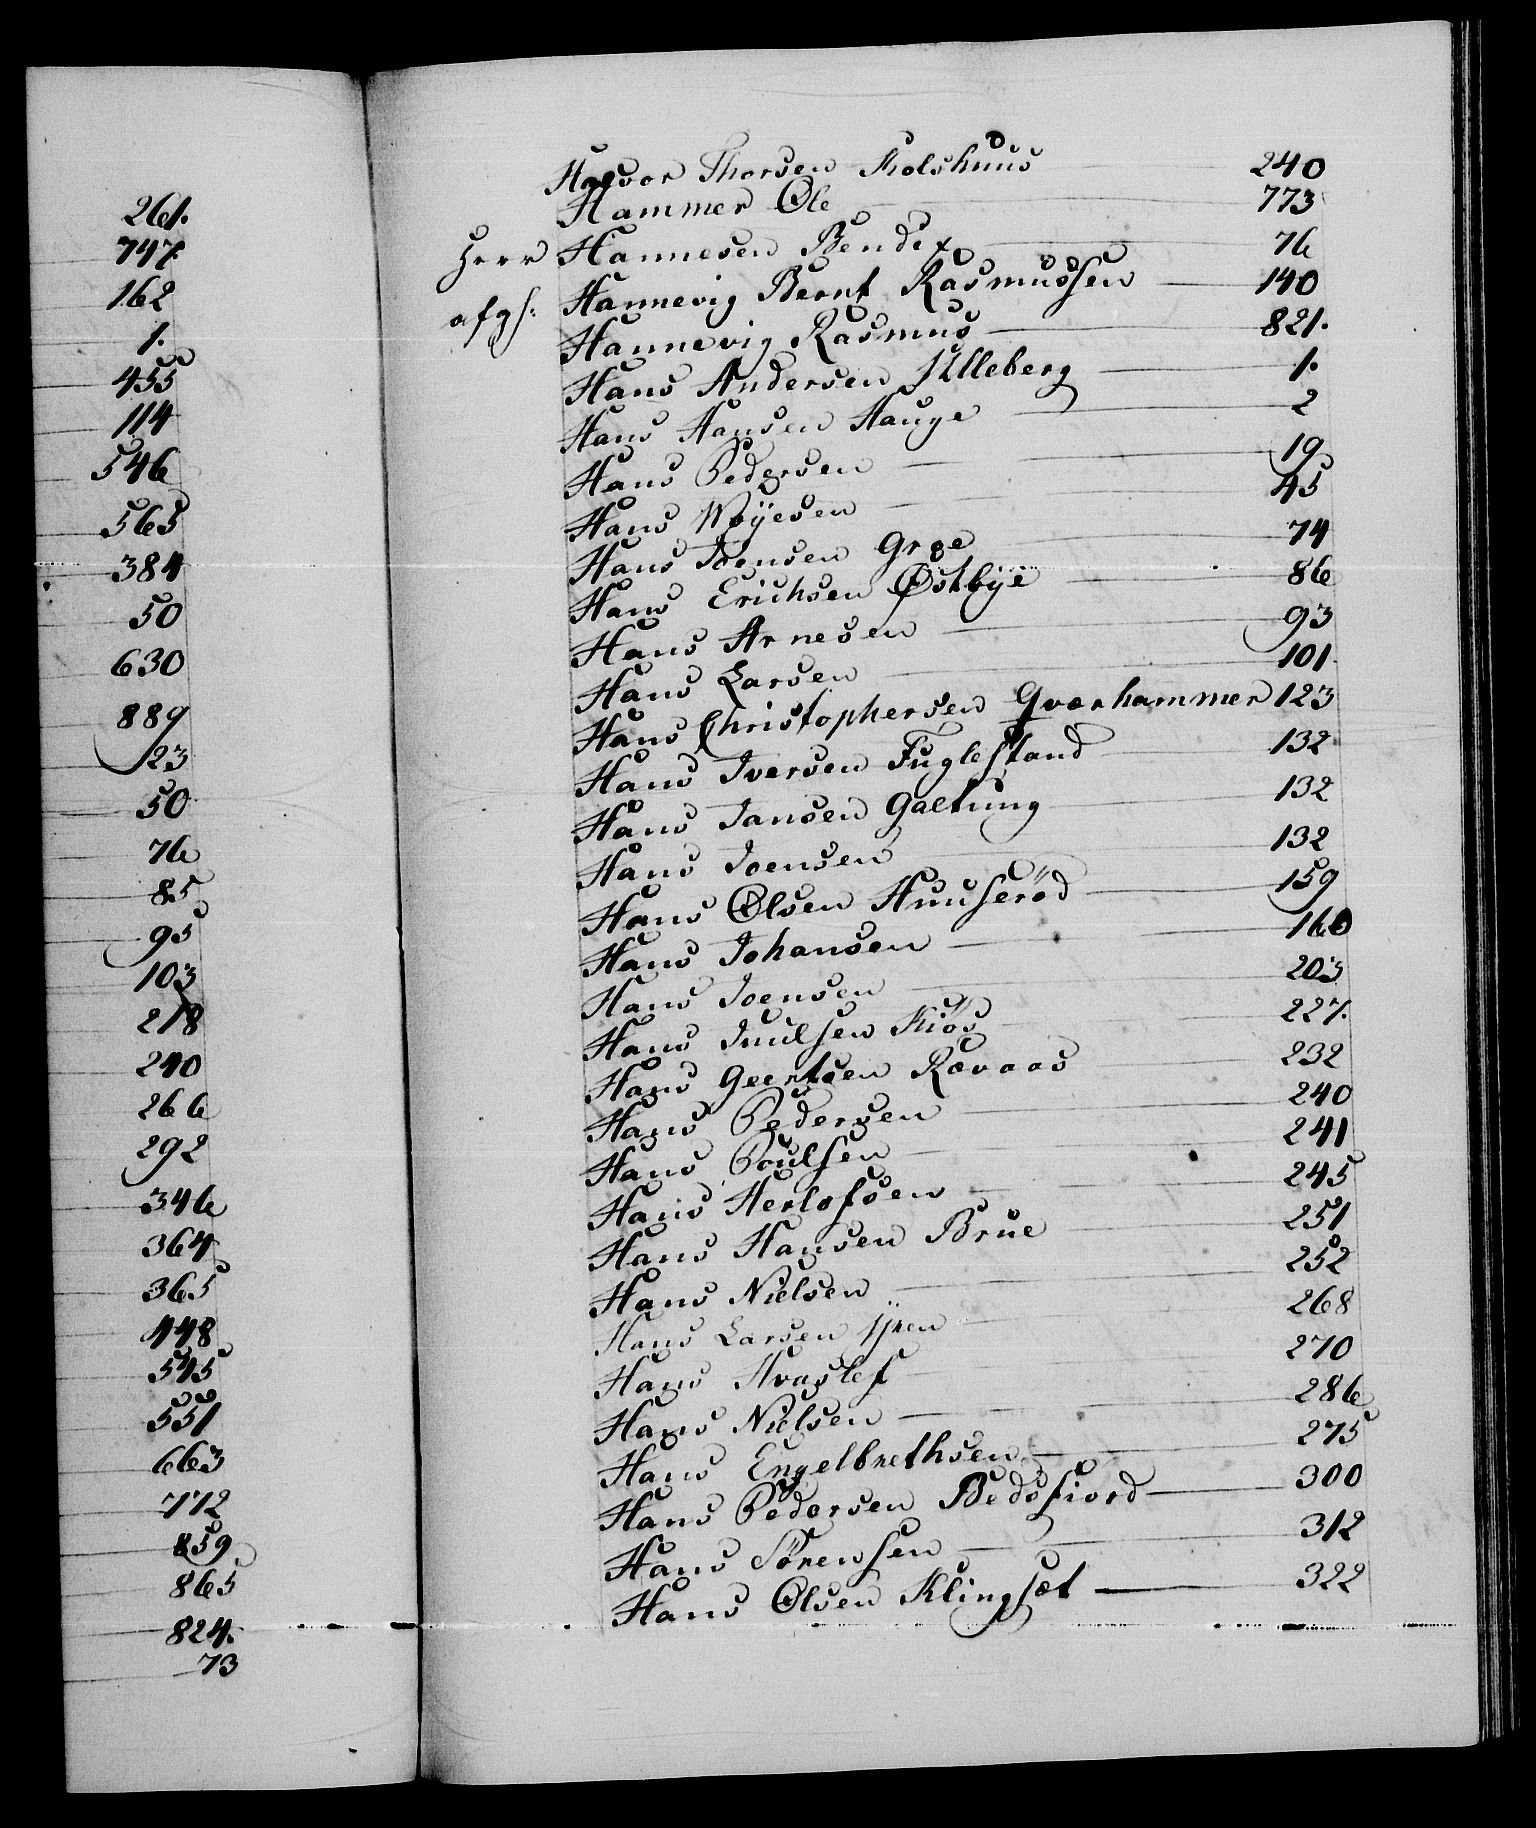 261.
747.
162
1.
455
114
546
565
384
50
630
889
123
50
76
85
95
103
218
240
266
292
346
364
365
448
545
551
663
772
859
865
824.
73
Halvor Thorsen Kolshuus 240
Hammer Ole 773
Herr Hannesen Bendix 76
afgh: Hannevig Bernt Rasmussen 140
Hannevig Rasmus 821.
Hans Andersen Ulleberg 1.
Hans Hansen Hauge 2
Hans Pedersen 19
Hans Wøyesen 45
Hans Joensen Grøe 74
Hans Erichsen Østbye 86
Hans Arnesen 93
Hans Larsen 101
Hans Christophersen Qværhammer 123
Hans Iversen Fuglestand 132
Hans Jansen Galtung 132
Hans Joensen 132
Hans Olsen Huuseröd 159
Hans Johansen 160
Hans Joensen 203
Hans Juulsen Kiös 227.
Hans Geertsen Rævaas 232
Hans Pedersen 240
Hans Poulsen 241
Hans Herlofsen 245
Hans Hansen Brue 251
Hans Nielsen 252
Hans Larsen 268
Hans 270
Hans Nielsen 286
Hans Engelbrethsen 275
Hans Pedersen Bedsfiord 300
Hans Sörensen 312
Hans Olsen Klingsæt 322